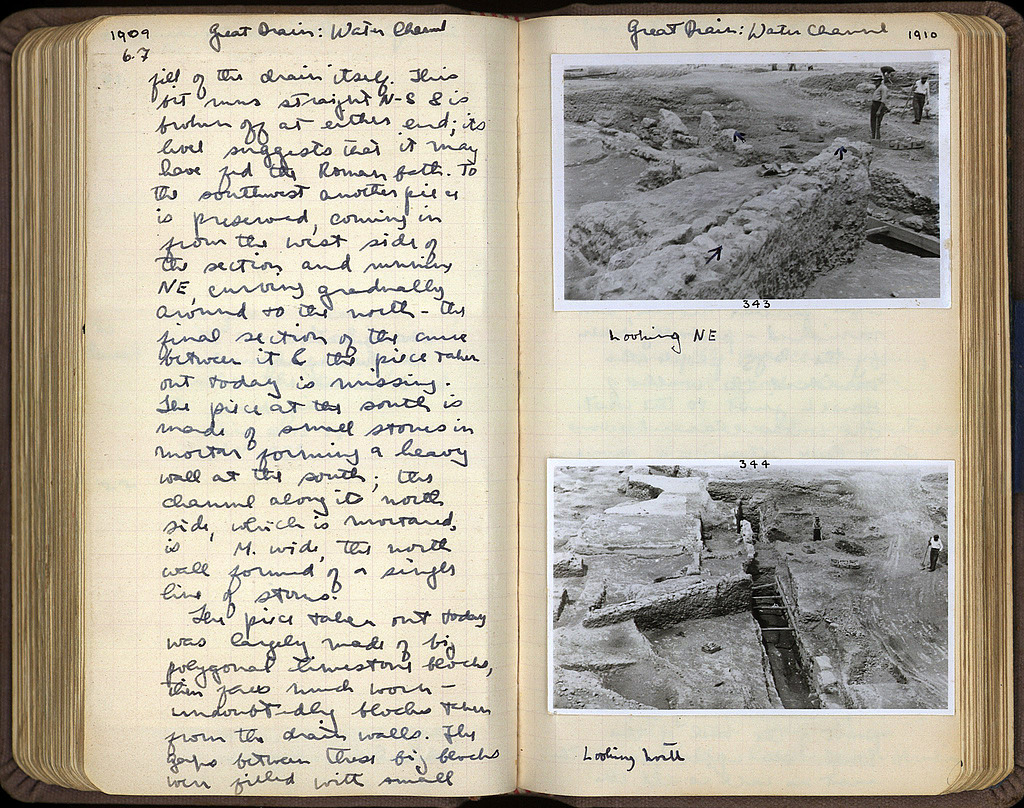 1909
Great Drain: Water Channel
6.7
fill of the drain itself. This
bit runs straight N-S & is
broken off at either end; its
level suggests that it may
have fed the Roman bath. To
the southwest another piece
is preserved, coming in
from the west side of
the section and running
NE, curving gradually
around to the north - the
final section of the curve
between it & the piece taken
out today is missing.
The piece at the south is
made of small stones in
mortar forming a heavy
wall at the south; the
channel along its north
side, which is mortared,
is M. wide, the north
wall formed of a single
line of stones.
The piece taken out today
was largely made of big
polygonal limestone blocks,
their faces much worn -
undoubtedly blocks taken
from the drain walls. The
gaps between these big blocks
were filled with small
Great Drain: Water Channel
1910
343
Looking NE
344
Looking North